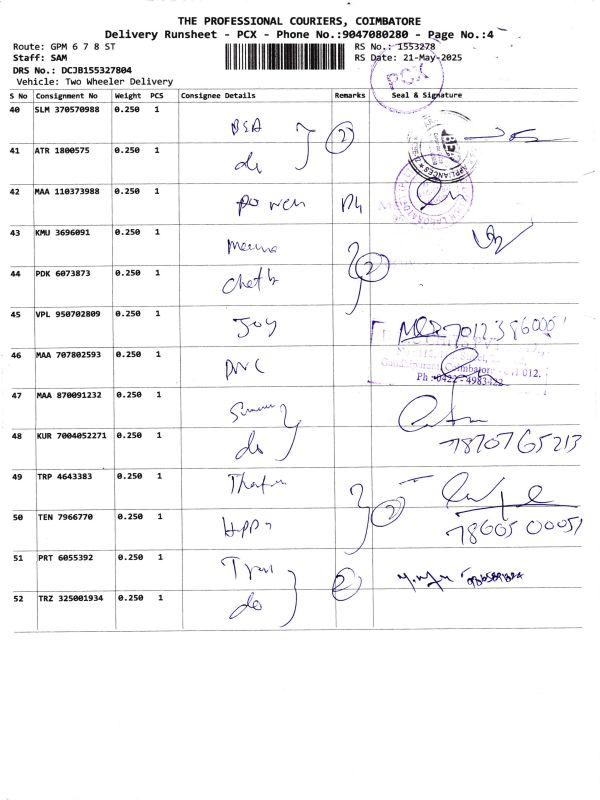 THE PROFESSIONAL COURIERS, COIMBATORE
Delivery Runsheet - PCX - Phone No.:9047080280 - Page No.:4
Route: GPM 6 7 8 ST RS No.: 1553278
Staff: SAM RS Date: 21-May-2025
DRS No.: DCJB155327804
Vehicle: Two Wheeler Delivery
PCX
S No Consignment No Weight PCS Consignee Details Remarks Seal & Signature
40 SLM 370570988 0.250 1 BSA
2
41 ATR 1800575 0.250 1 do
42 MAA 110373988 0.250 1 power
43 KMU 3696091 0.250 1
2
44 PDK 6073873 0.250 1
45 VPL 950702809 0.250 1 Joy
46 MAA 707802593 0.250 1
Coimbatore 012.
Ph : 0422 - 4983422
47 MAA 870091232 0.250 1
48 KUR 7004052271 0.250 1 do 7870765213
49 TRP 4643383 0.250 1
2
50 TEN 7966770 0.250 1 7860500051
51 PRT 6055392 0.250 1
2
52 TRZ 325001934 0.250 1 do